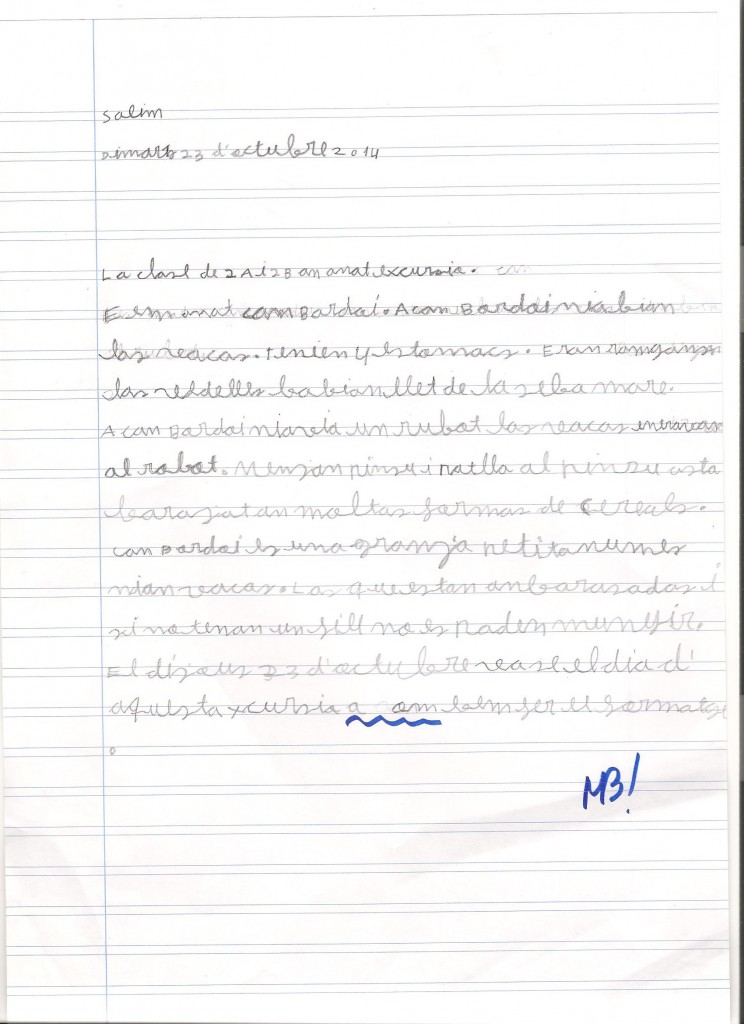 Salim
Dimarts 23 d'octubre 2014
La clase de 2A i 2B an anat excursia.
E em anat can Bardai. A can Bardai nia bian
las veacas. tenien 4 estomacs. Eran
las vedelles babian llet de la seba mare.
A can Bardai niavia un rubot las veacas
al robot. Menjan pinsu i palla al pinsu asta
barajat an moltas formas de cereals.
can Bardai es una granja petita numes
nian veacas. Las que estan anbarasadas i
si no tenan un fill no es poden munyir.
El dijous 23 d'octubre va se el dia d'
aquesta xcursia a om bem fer el formatge
.
MB!